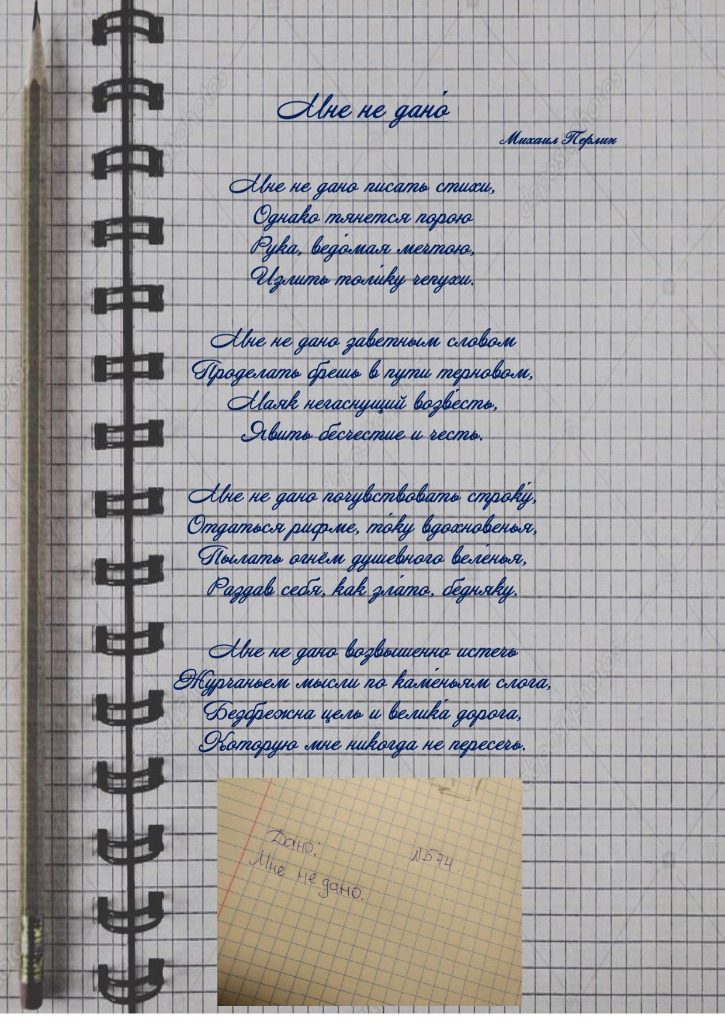 Мне не дано́
Михаил Перлин
Мне не дано писать стихи,
Однако тянется порою
Рука, ведо́мая мечтою,
Излить толи́ку чепухи.
Мне не дано заветным словом
Проделать брешь в пути терновом,
Маяк негаснущий возве́сть,
Явить бесчестие и честь.
Мне не дано почувствовать строку́,
Отдаться рифме, то́ку вдохновенья,
Пылать огнём душевного веле́нья,
Раздав себя, как зла́то, бедняку.
Мне не дано возвышенно истечь
Журчаньем мысли по каме́ньям слога,
Безбрежна цель и велика́ дорога,
Которую мне никогда не пересечь.
Дано: №574
Мне не дано.